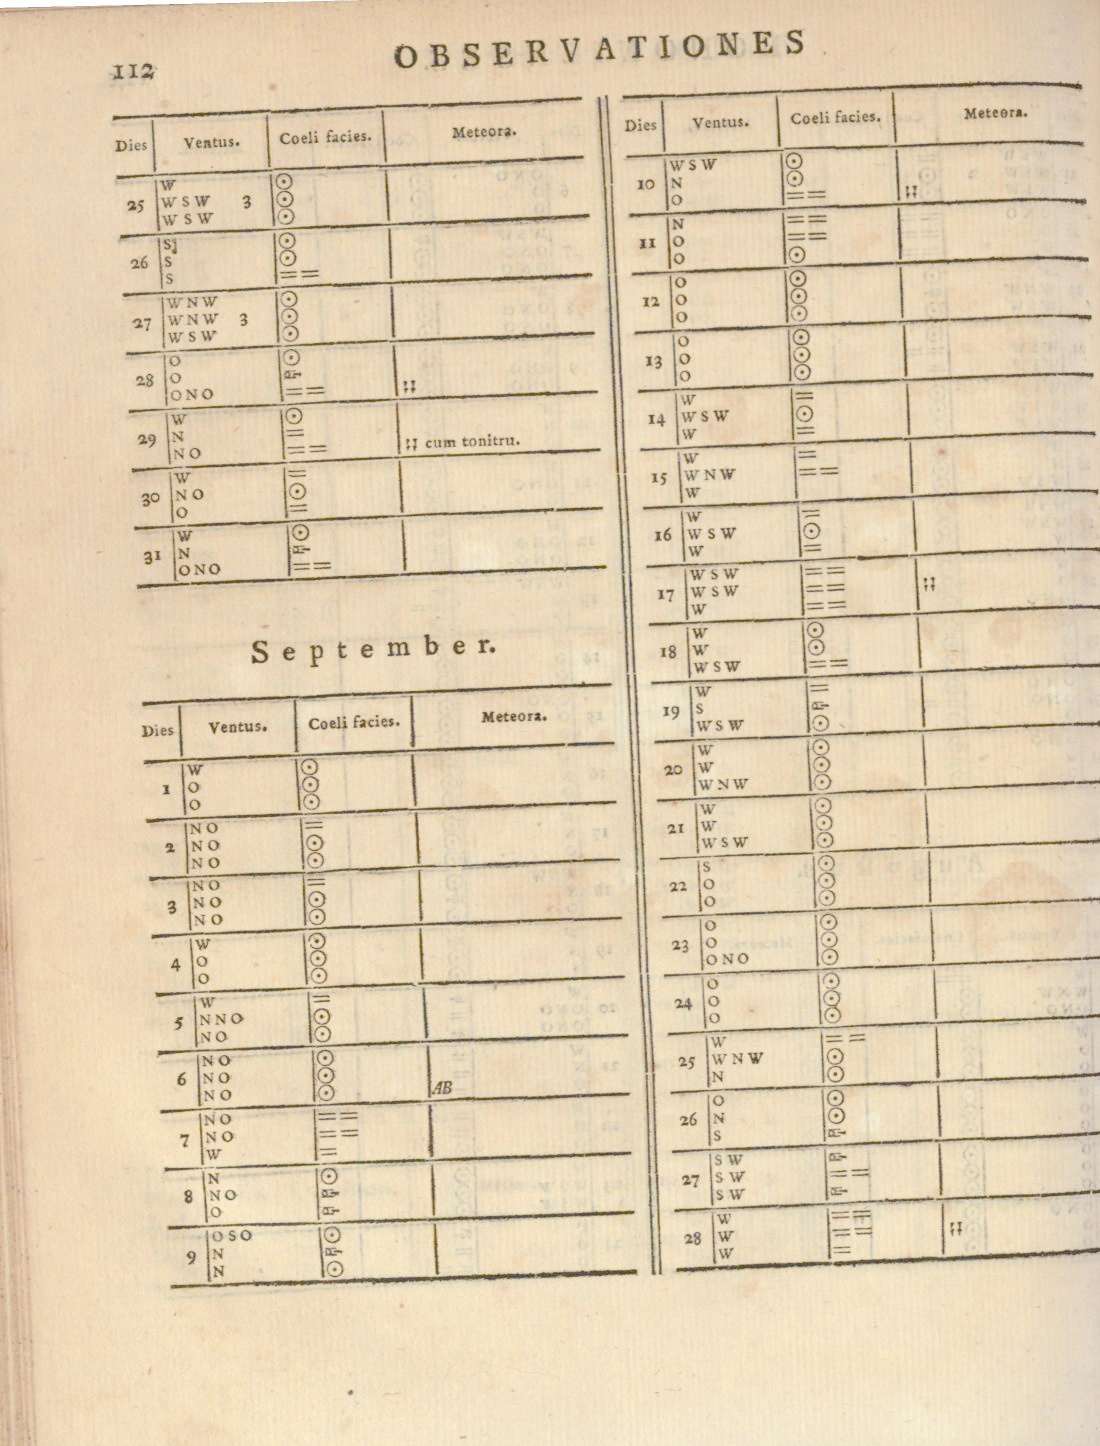 112
OBSERVATIONES
Dies Ventus. Coeli facies. Meteora.
25 W ☉
W S W 3 ☉
W S W ☉
26 S ☉
S ☉
S = =
27 W N W ☉
W N W 3 ☉
W S W ☉
28 O ☉
O
O N O = = ⁏⁏
29 W ☉
N =
N O = = ⁏⁏ cum tonitru.
30 W =
N O ☉
O =
31 W ☉
N
O N O = =
September.
Dies Ventus. Coeli facies. Meteora.
1 W ☉
O ☉
O ☉
2 N O =
N O ☉
N O ☉
3 N O =
N O ☉
N O ☉
4 W ☉
O ☉
O ☉
5 W =
N N O ☉
N O ☉
6 N O ☉
N O ☉
N O ☉ AB
7 N O = =
N O = =
W =
8 N ☉
N O
O
9 O S O ☉
N
N ☉
Dies Ventus. Coeli facies. Meteora.
10 W S W ☉
N ☉
O = = ⁏⁏
11 N = =
O = =
O ☉
12 O ☉
O ☉
O ☉
13 O ☉
O ☉
O ☉
14 W =
W S W ☉
W =
15 W =
W N W = =
W
16 W =
W S W ☉
W =
17 W S W = = ⁏⁏
W S W = =
W = =
18 W ☉
W ☉
W S W = =
19 W =
S
W S W ☉
20 W ☉
W ☉
W N W ☉
21 W ☉
W ☉
W S W ☉
22 S ☉
O ☉
O ☉
23 O ☉
O ☉
O N O ☉
24 O ☉
O ☉
O ☉
25 W = =
W N W ☉
N ☉
26 O ☉
N ☉
S
27 S W
S W = =
S W
28 W = = ⁏⁏
W = =
W =